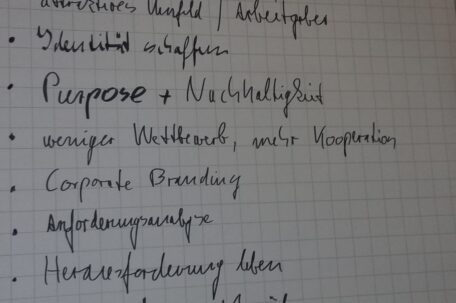 attraktives Umfeld / Arbeitgeber
• Identität schaffen
• Purpose + Nachhaltigkeit
• weniger Wettbewerb, mehr Kooperation
• Corporate Branding
• Anforderungsanalyse
• Herausforderung leben